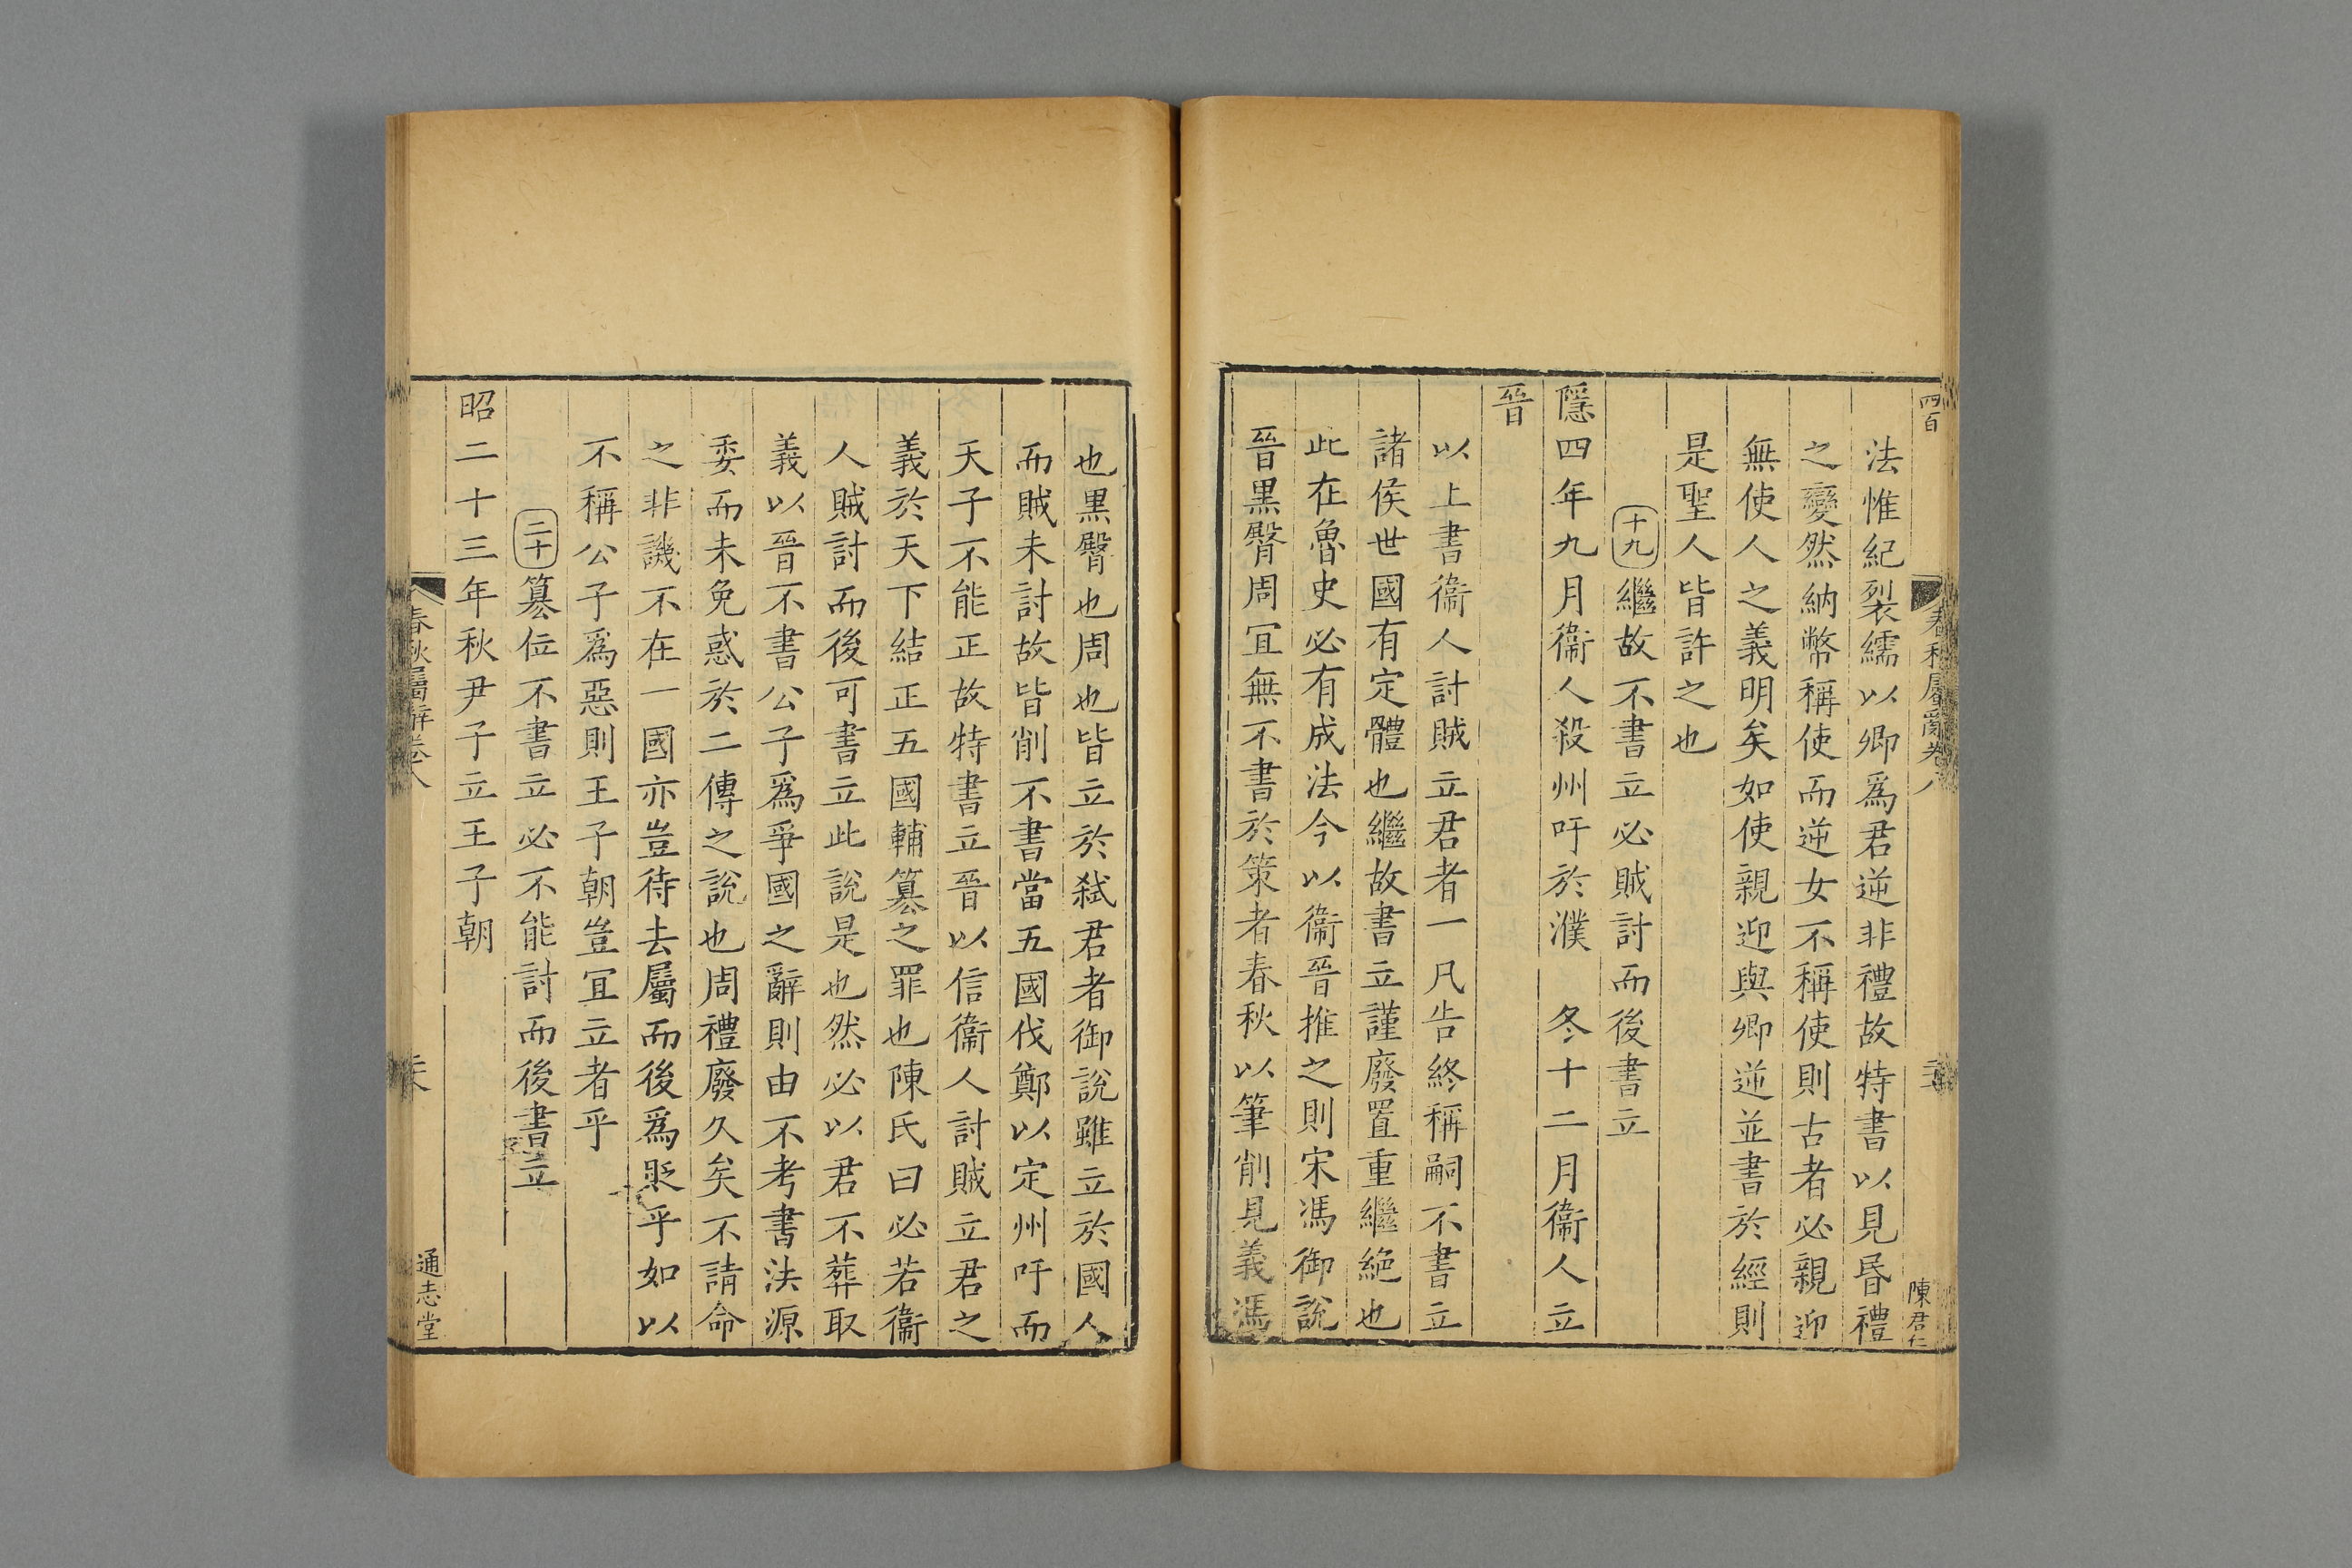 四百
春秋屬辭卷八
陳君仁
法惟紀裂繻以卿爲君逆非禮故特書以見昏禮
之變然納幣稱使而逆女不稱使則古者必親迎
無使人之義明矣如使親迎與卿逆並書於經則
是聖人皆許之也
十九繼故不書立必賊討而後書立
隱四年九月衞人殺州吁於濮　冬十二月衞人立
晉
以上書衞人討賊立君者一凡告終稱嗣不書立
諸侯世國有定體也繼故書立謹廢置重繼絶也
此在魯史必有成法今以衞晉推之則宋馮御說
晉黑臀周宜無不書於策者春秋以筆削見義馮
也黑臀也周也皆立於弑君者御說雖立於國人
而賊未討故皆削不書當五國伐鄭以定州吁而
天子不能正故特書立晉以信衞人討賊立君之
義於天下結正五國輔簒之罪也陳氏曰必若衞
人賊討而後可書立此說是也然必以君不葬取
義以晉不書公子爲爭國之辭則由不考書法源
委而未免惑於二傳之說也周禮廢久矣不請命
之非譏不在一國亦豈待去屬而後爲貶乎如以
不稱公子爲惡則王子朝豈宜立者乎
二十簒位不書立必不能討而後書立
昭二十三年秋尹子立王子朝
春秋屬辭卷八
通志堂